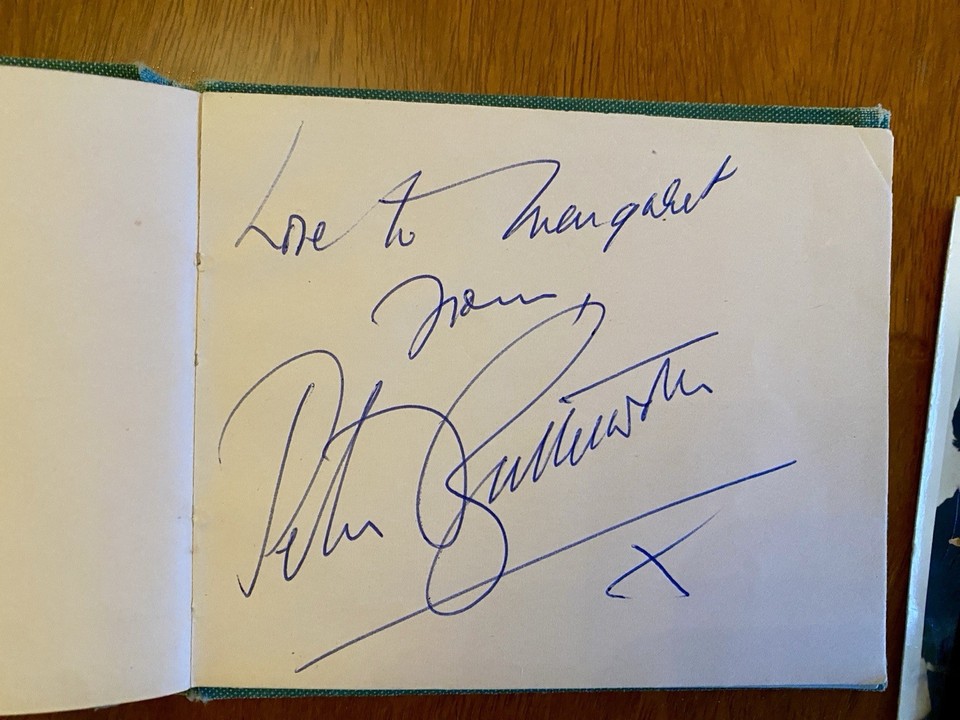 Love to Margaret
from
Peter Butterworth
X